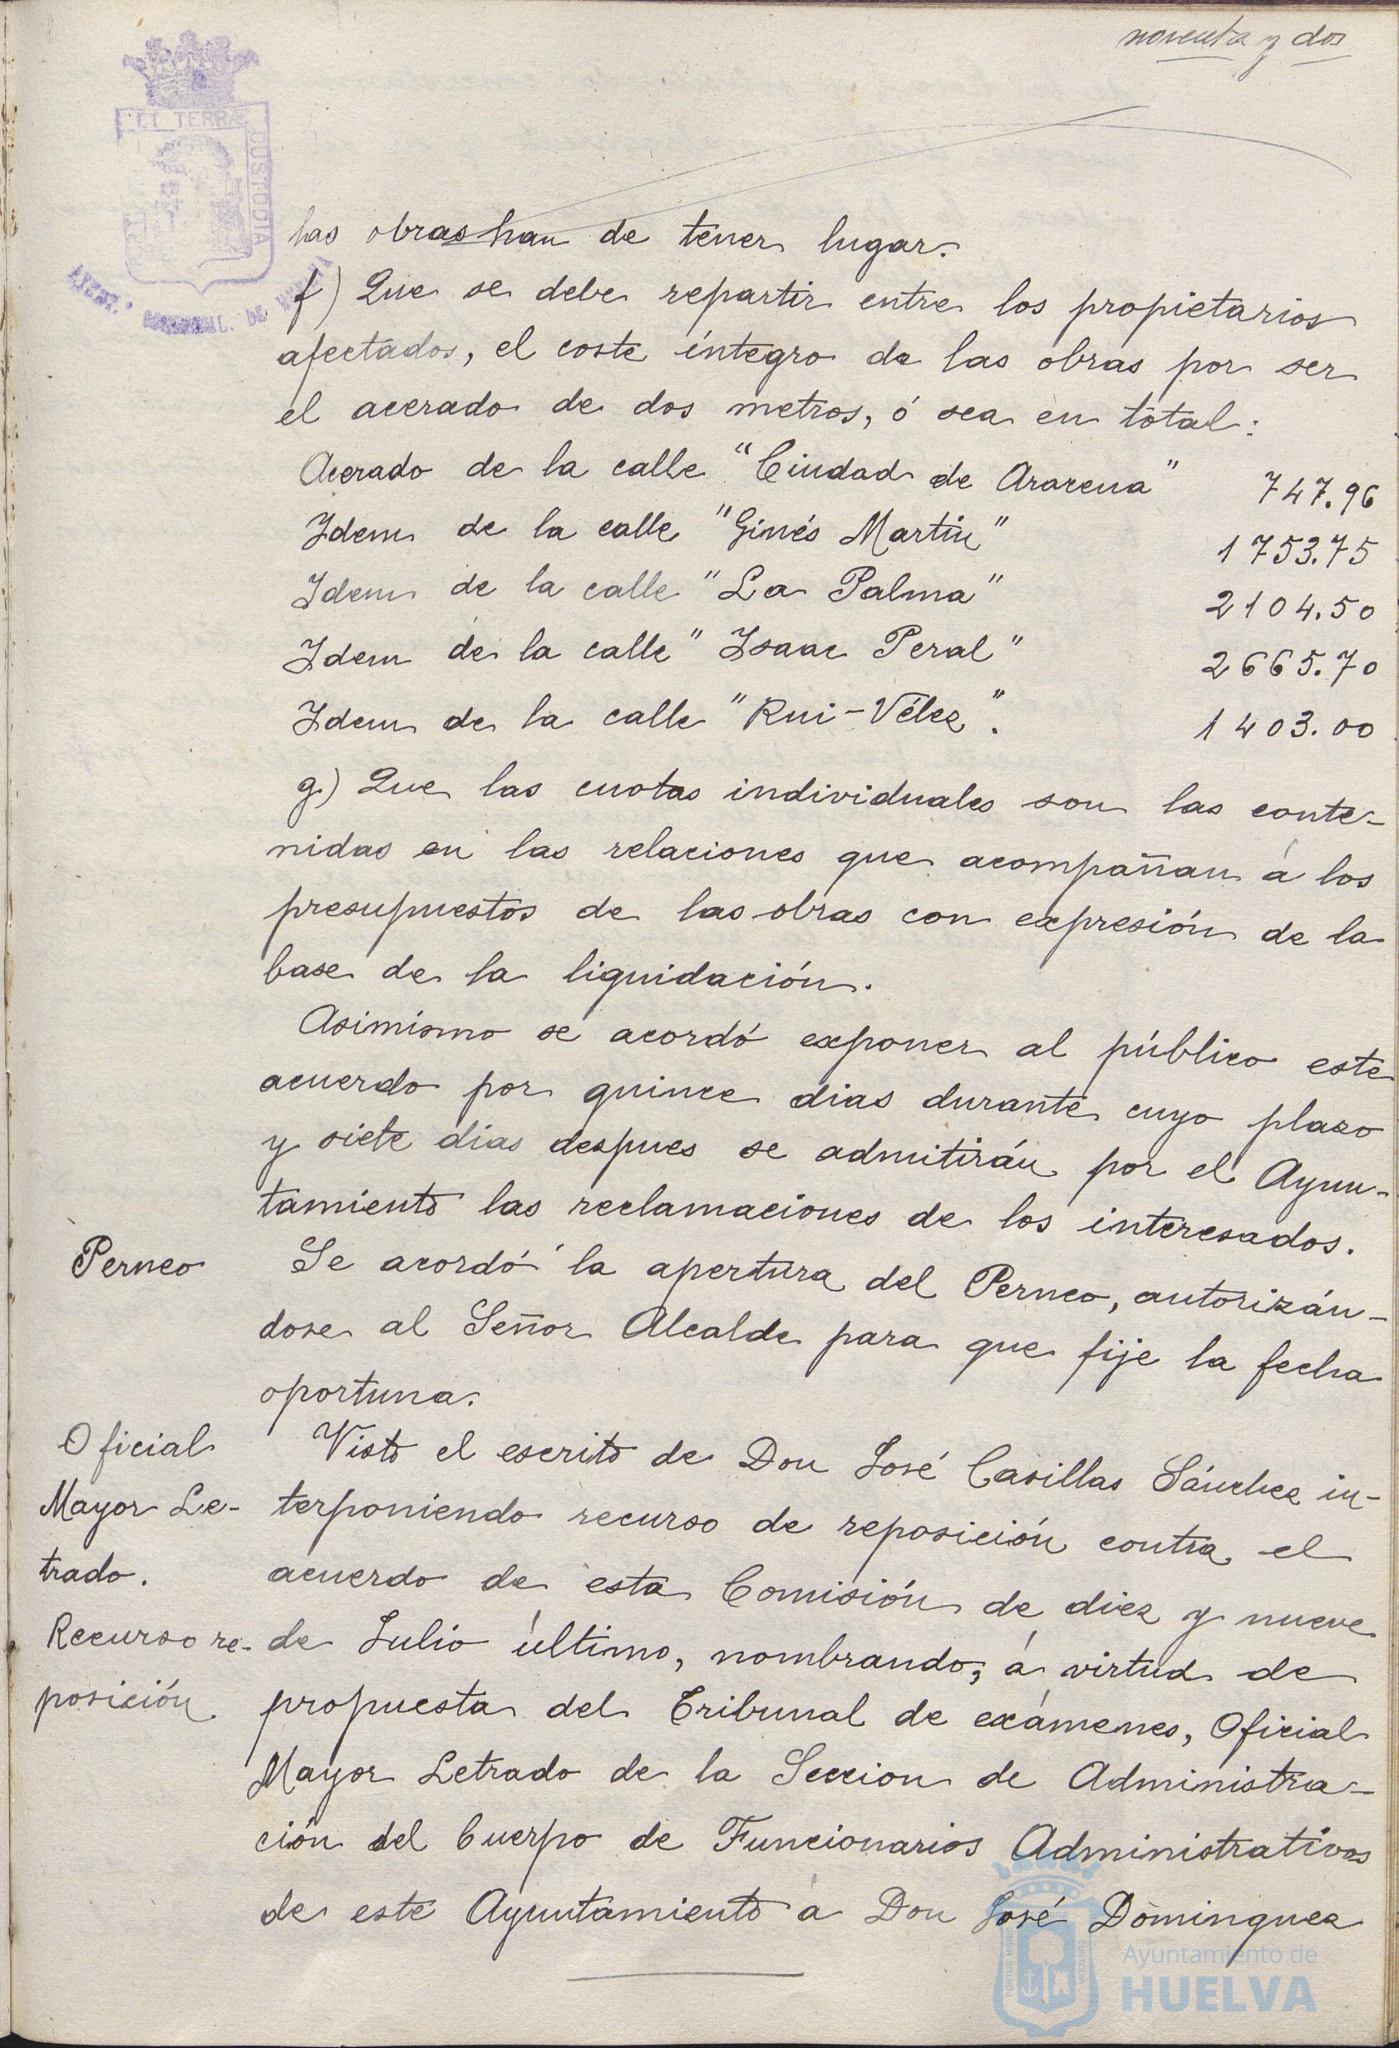 noventa y dos
ET TERRÆ
CUSTODIA
AYUNT.º
DE
las obras han de tener lugar.
f) Que se debe repartir entre los propietarios
afectados, el coste íntegro de las obras por ser
el acerado de dos metros, ó sea en total:
Acerado de la calle "Ciudad de Aracena" 747.96
Idem de la calle "Ginés Martin" 1753.75
Idem de la calle "La Palma" 2104.50
Idem de la calle "Isaac Peral" 2665.70
Idem de la calle "Rui-Vélez". 1403.00
g) Que las cuotas individuales son las conte-
nidas en las relaciones que acompañan á los
presupuestos de las obras con expresión de la
base de la liquidación.
Asimismo se acordó exponer al público este
acuerdo por quince dias durante cuyo plazo
y siete dias despues se admitirán por el Ayun-
tamiento las reclamaciones de los interesados.
Perneo
Se acordó la apertura del Perneo, autorizán-
dose al Señor Alcalde para que fije la fecha
oportuna.
Oficial
Mayor Le-
trado.
Recurso re-
posición
Visto el escrito de Don José Casillas Sánchez in-
terponiendo recurso de reposición contra el
acuerdo de esta Comisión de diez y nueve
de Julio último, nombrando, á virtud de
propuesta del Tribunal de exámenes, Oficial
Mayor Letrado de la Seccion de Administra-
ción del Cuerpo de Funcionarios Administrativos
de este Ayuntamiento á Don José Dominguez
Ayuntamiento de
HUELVA